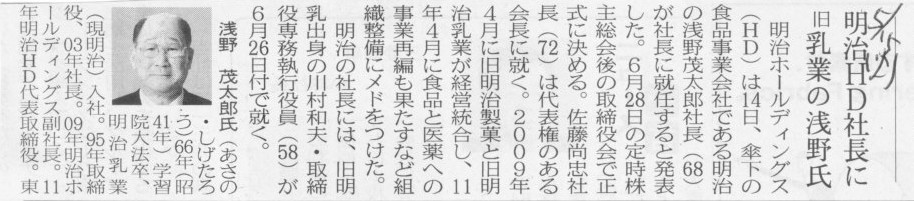 明治HD社長に
旧乳業の浅野氏
明治ホールディングス
(HD)は14日、傘下の
食品事業会社である明治
の浅野茂太郎社長(68)
が社長に就任すると発表
した。6月28日の定時株
主総会後の取締役会で正
式に決める。佐藤尚忠社
長(72)は代表権のある
会長に就く。2009年
4月に旧明治製菓と旧明
治乳業が経営統合し、11
年4月に食品と医薬への
事業再編も果たすなど組
織整備にメドをつけた。
明治の社長には、旧明
乳出身の川村和夫・取締
役専務執行役員(58)が
6月26日付で就く。
浅野 茂太郎氏(あさの
・しげたろ
う)66年(昭
41年)学習
院大法卒、
明治乳業
(現明治)入社。95年取締
役、03年社長。09年明治ホ
ールディングス副社長。11
年明治HD代表取締役。東